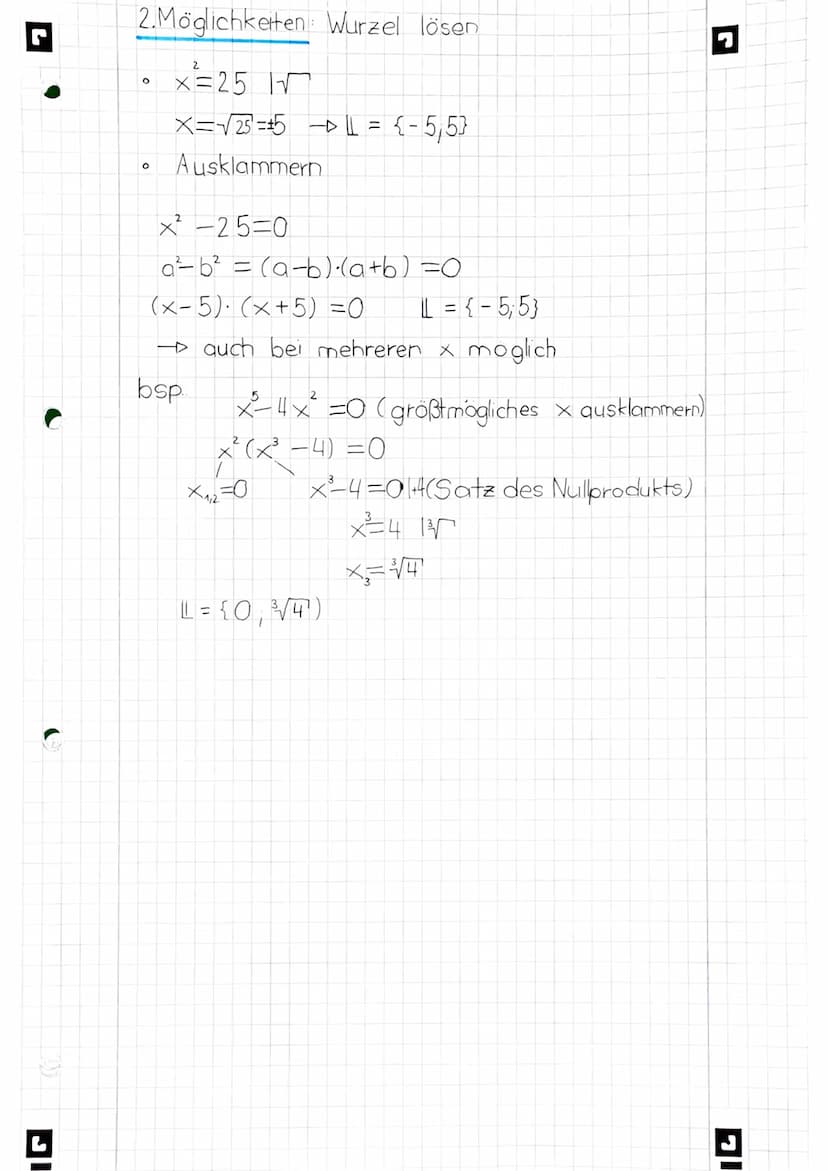 2.Möglichkeiten: Wurzel lösen
° x²=25 |√
x=√25=±5 → 𝕃 = {-5,5}
° Ausklammern
x² -25=0
a²-b² = (a-b)·(a+b) =0
(x-5)· (x+5) =0 𝕃 = {-5;5}
→ auch bei mehreren x moglich
bsp.
x⁵-4x² =0 (größtmögliches x ausklammern)
x²(x³ -4) =0
x₁,₂=0 x³-4=0|+4(Satz des Nullprodukts)
x³=4 |³√
x₃=³√4
𝕃 = {0, ³√4)